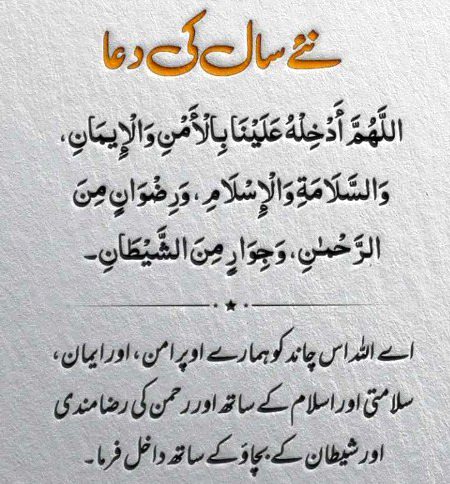 نئے سال کی دعا
اللَّهُمَّ أَدْخِلْهُ عَلَيْنَا بِالْأَمْنِ وَالْإِيمَانِ،
وَالسَّلَامَةِ وَالْإِسْلَامِ، وَرِضْوَانٍ مِنَ
الرَّحْمٰنِ، وَجِوَارٍ مِنَ الشَّيْطَانِ۔
اے اللہ اس چاند کو ہمارے اوپر امن، اور ایمان،
سلامتی اور اسلام کے ساتھ اور رحمن کی رضامندی
اور شیطان کے بچاؤ کے ساتھ داخل فرما۔